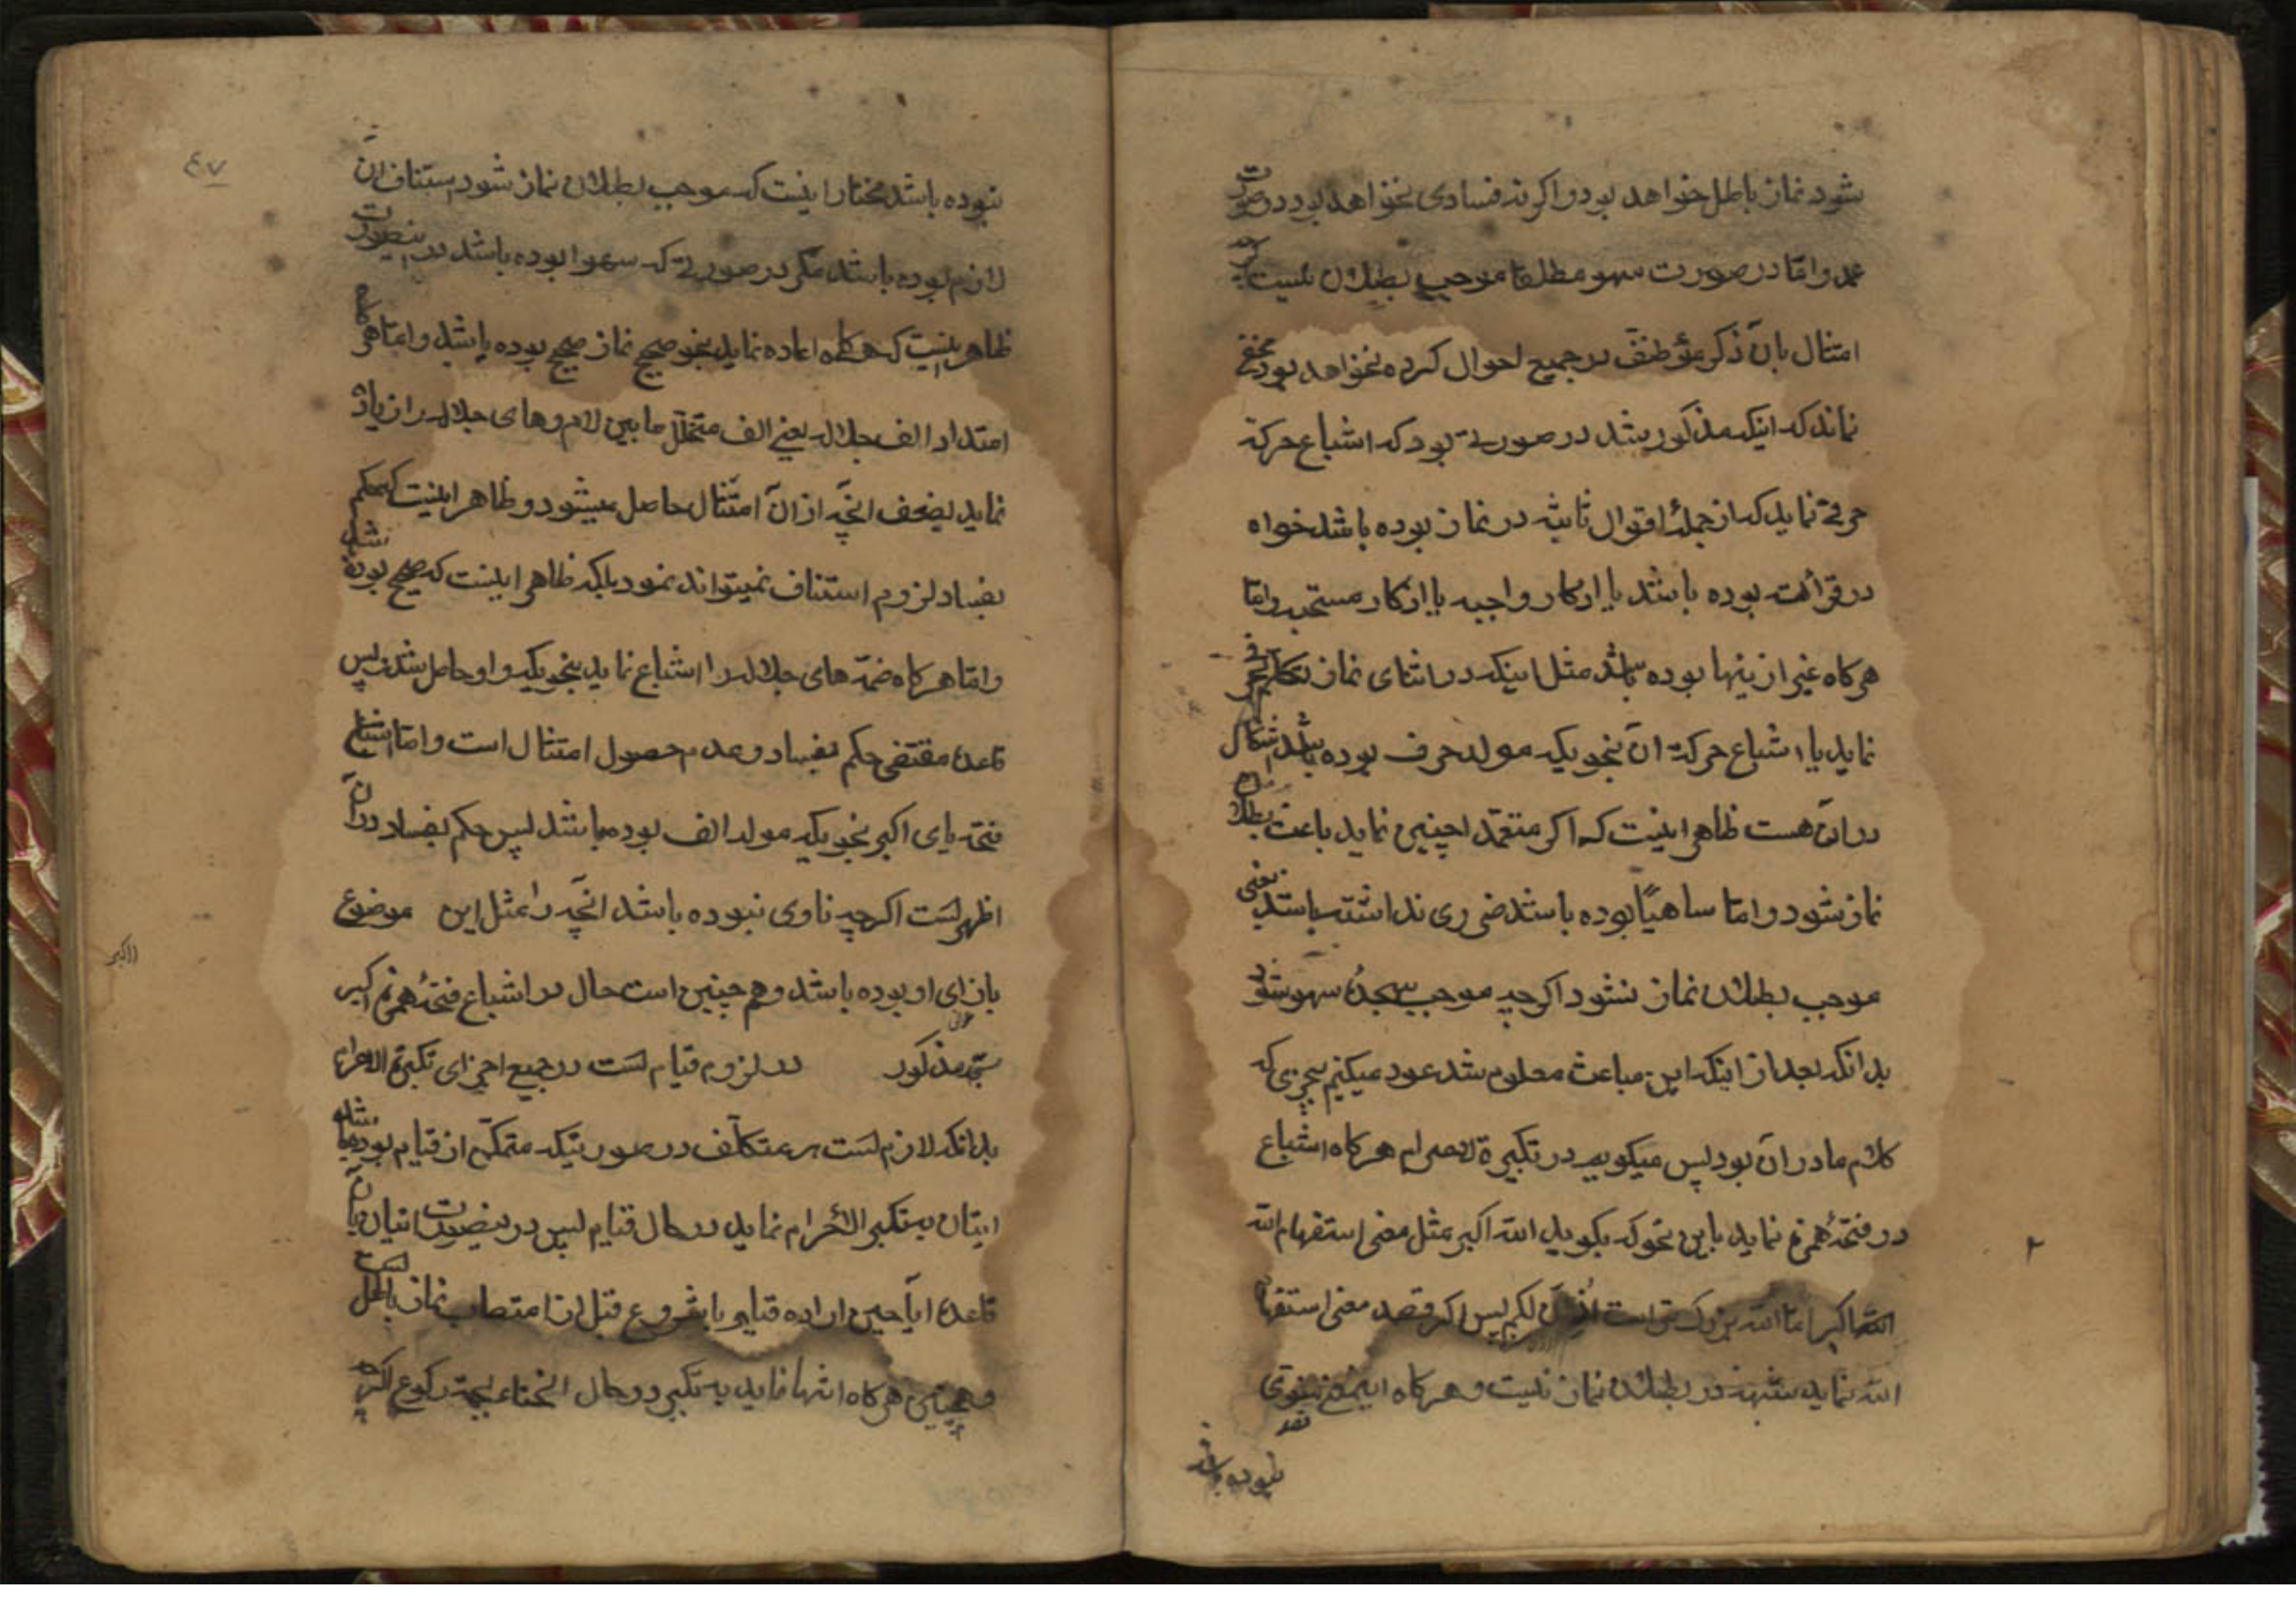 شود نماز باطل خواهد بود و اکر نه فسادی نخواهد بود در صورت
عمد و امّا در صورت سهو مطلقا موجب بطلان نیست
امتثال بان ذکر مؤظف در جمیع احوال کرده نخواهد بود مخفی
نماند که اینکه مذکور شد در صورتی بود که اشباع حرکة
حرفی نماید که از جملهٔ اقوال ثابته در نماز بوده باشد خواه
در قرائت بوده باشد یا اذکار واجبه یا اذکار مستحبه و امّا
هرکاه غیر از ینها بوده باشد مثل اینکه در اثنای نماز تکلم بحرفی
نماید با اشباع حرکة آن بنحویکه مولد حرف بوده باشد اشکال
در آن هست ظاهر اینست که اکر متعمّد اچنین نماید باعث بطلان
نماز شود و امّا ساهیًا بوده باشد ضرری نداشته باشد یعنی
موجب بطلان نماز نشود اکرچه موجب سجدهٔ سهو شود
بدانکه بعد از اینکه این مباحث معلوم شد عود میکنیم بچیزی که
کلام ما در آن بود پس میکوییم در تکبیرة الاحرام هرکاه اشباع
در فتحهٔ همزه نماید باین نحو که بکوید الله اکبر مثل معنی استفهام الله
الله اکبر اما الله بزرک تر است لکم پس اکر قصد معنی استفهام
الله نماید شبهه در بطلان نماز نیست و هرکاه اینمعنی منوی
نبوده باشد
٤٧
نبوده باشد مختار اینست که موجب بطلان نماز شود استناف آن
لازم بوده باشد مکر در صورتی که سهوا بوده باشد در اینصورت
ظاهر اینست که هرکاه اعاده نماید بنحو صحیح نماز صحیح بوده باشد و امّا هرکاه
امتداد الف جلاله یعنی الف متخلّل مابین لام و های جلاله را زیاد
نماید بضعف انچّه از آن امتثال حاصل میشود و ظاهر اینست که حکم
بفساد لزوم استناف نمیتواند نمود بلکه ظاهر اینست که صحیح بوده باشد
و امّا هرکاه ضمّه های جلاله را اشباع نماید بنحویکه واو حاصل شد پس
قاعدهٔ مقتضی حکم بفساد و عدم حصول امتثال است و امّا اشباع
فتحه بای اکبر بنحویکه مولد الف بوده باشد پس حکم بفساد در آن
اظهر است اکرچه ناوی نبوده باشد انچّه را مثل این موضوع
بازای او بوده باشد و همچنین است حال در اشباع فتحهٔ همزه اکبر
اکبر
مذکور در لزوم قیام است در جمیع اجزای تکبیرة الاحرام
بدانکه لازم است بر متکلّف در صورتیکه متمکّن از قیام بوده باشد
اینان به تکبیر الاحرام نماید در حال قیام پس در ینصورت اتیان بآن
قاعدهٔ ایا حین اراده قیام یا شروع قبل از امتصاب نماز باطل است
و همچنین هرکاه انتها نماید به تکبیر در حال انحناء بجهة رکوع اکرچه